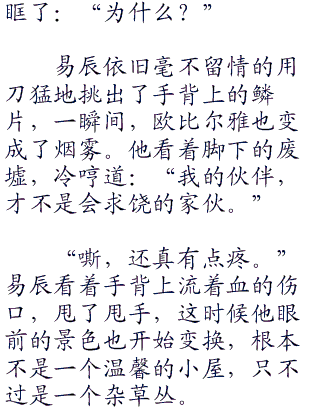 眶了：“为什么？”
易辰依旧毫不留情的用
刀猛地挑出了手背上的鳞
片，一瞬间，欧比尔雅也变
成了烟雾。他看着脚下的废
墟，冷哼道：“我的伙伴，
才不是会求饶的家伙。”
“嘶，还真有点疼。”
易辰看着手背上流着血的伤
口，甩了甩手，这时候他眼
前的景色也开始变换，根本
不是一个温馨的小屋，只不
过是一个杂草丛。